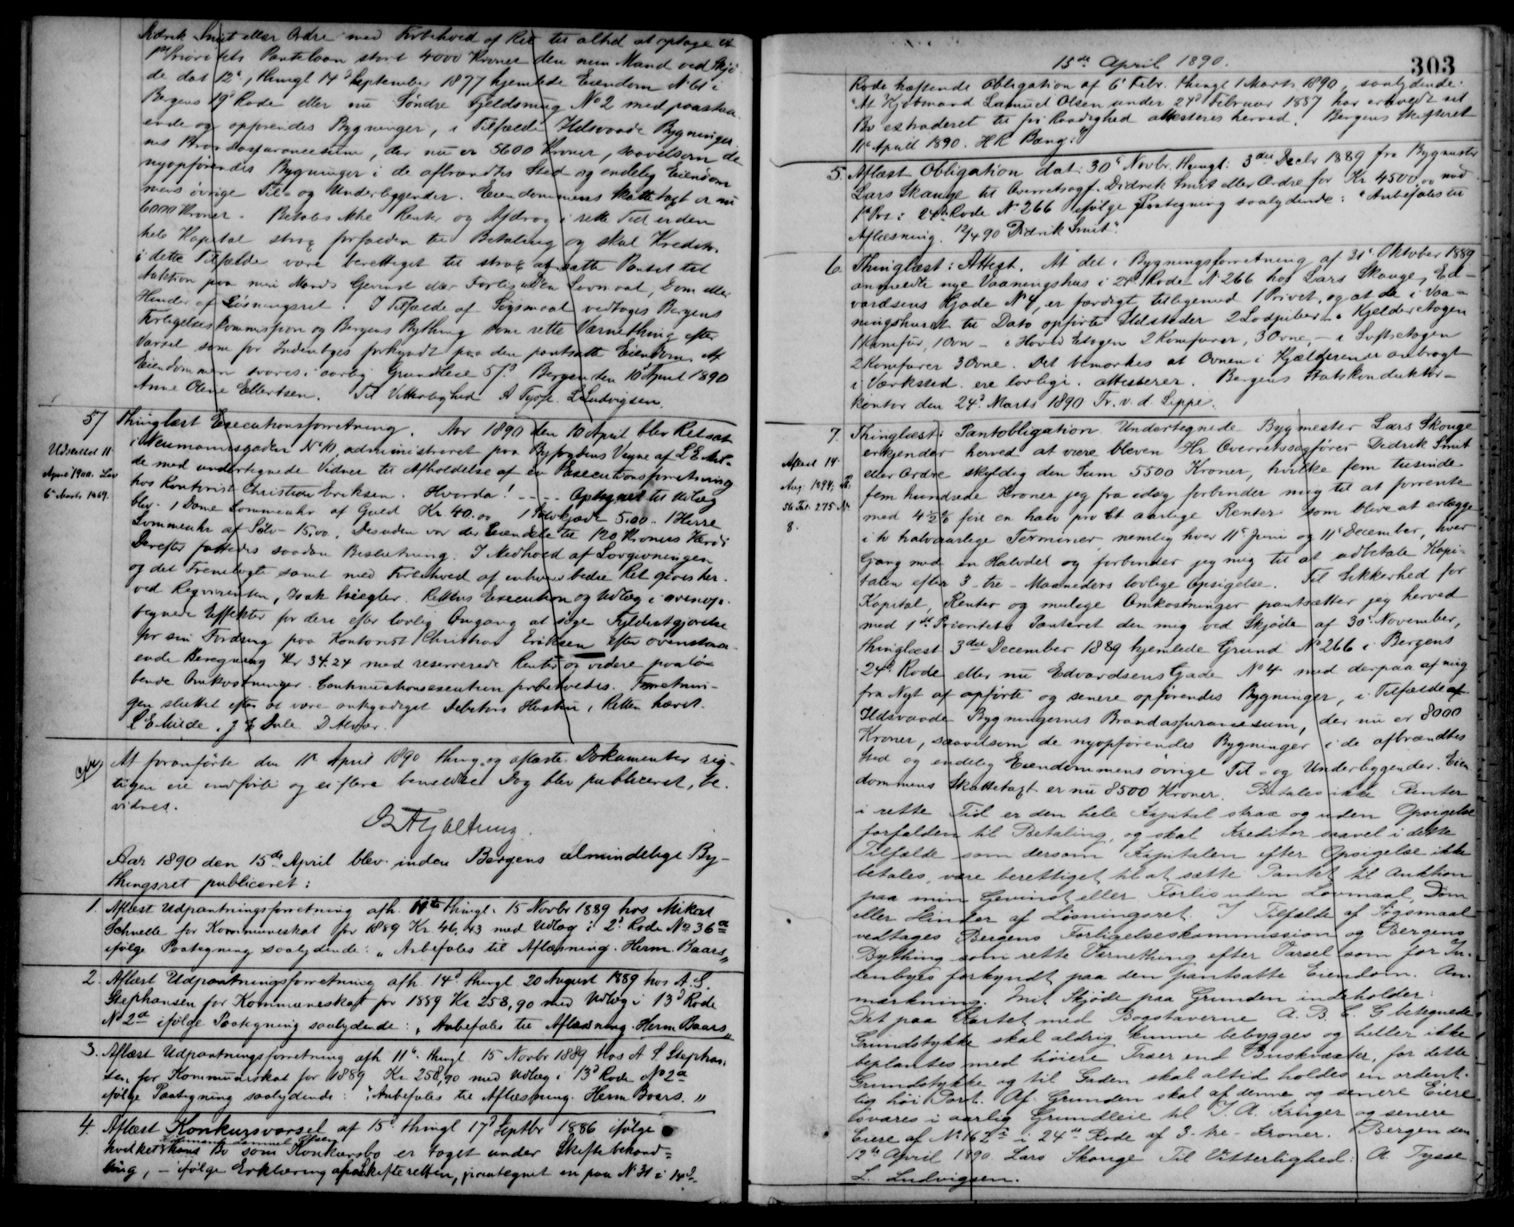 Didrik Smit eller Ordre med Forbehold af Ret til altid at optage et
1ste Prioritets Pantelaan stort 4000 Kroner den min Mand ved Skjö-
de dat 12te, thingl 14d September 1877 hjemlede Eiendom No 61 i
Bergens 19d Rode eller nu Söndre Fjeldsmug No 2 med paastaa-
ende og opförendes Bygninger, i Tilfælde Ildsvaade Bygninger-
nes Brandassurancesum, der nu er 5600 Kroner, saavelsom de
nyopförendes Bygninger i de afbrændtes Sted og endelig Eiendom-
mens övrige Til og Underliggender. Eiendommens Skattetaxt er nu
6000 Kroner. Betales ikke Renter og Afdrag i rette Tid er den
hele Kapital strax forfalden til Betaling og skal Kreditor
i dette Tilfælde være berettiget til strax at sætte Pantet til
Auktion paa min Mands Gevinst eller Forlis uden Lovmaal, Dom eller
Hinder af Lösningsret. I Tilfælde af Sögsmaal vedtages Bergens
Forligelseskommission og Bergens Bything som rette Værnething efter
Varsel som for Indenbyes forkyndt paa den pantsatte Eiendom. Af
Eiendommen svares aarlig Grundleie Bergen den 10 April 1890
Anne Oline Ellertsen. Til Vitterlighed A Tysse. L Ludvigsen.
57 Thinglæst Executionsforretning. Aar 1890 den 10 April blev Ret sat
i Neumannsgaden No 10, administreret paa Byfogdens Vegne af L E Mil-
Udslettet 11
April 1900. Lov
6 Marts 1869.
de med undertegnede Vidner til Afholdelse af en Executionsforretning
hos Kontorist Christian Eriksen. Hvorda! - - - Optegnet til Udlæg
blev. 1 Dame Lommeuhr af Guld Kr 40.00 5.00 1 Herre
Lommeuhr af Sölv 15,00. Desuden var der Eiendele til 120 Kroners Værdi
Derefter fattedes saadan Beslutning. I Medhold af Lovgivningen
og det Fremlagte samt med Forbehold af enhvers bedre Ret gives her-
ved Reqvirenten, Isak Rettens Execution og Udlæg i ovenop-
tegnede Effekter for deri efter lovlig Omgang at söge Fyldestgjörelse
for sin Fordring paa Kontorist Christian Eriksen efter ovenstaa-
ende Beregning Kr 34.24 med reserverede Renter og videre paalö-
bende Omkostninger. Continuationsexecution forbeholdes. Forretnin-
gen sluttet efter at være ankyndiget Debitors Hustru. Retten hævet.
L E Milde. J C Dale D Alver.
At foranförte den 11te April 1890 thing- og aflæste Dokumenter rig-
tigen ere indförte og ei flere benævnte Dag blev publiceret, be-
vidnes.
Aar 1890 den 15de April blev inden Bergens almindelige By-
thingsret publiceret:
1. Aflæst Udpantningsforretning afh. 11te thingl. 15 Novbr 1889 hos Mikael
Schnelle for Kommuneskat for 1889 Kr. 46,43 med Udlæg i 2d Rode No 36a
ifölge Paategning saalydende: „Anbefales til Aflæsning. Herm. Baars„
2. Aflæst Udpantningsforretning afh. 14d thingl 20 August 1889 hos A. S.
Stephansen for Kommuneskat for 1889 Kr 258,90 med Udlæg i 13d Rode
No 2a ifölge Paategning saalydende: „Anbefales til Aflæsning. Herm Baars„
3. Aflæst Udpantningsforretning afh 11te thingl 15 Novbr 1889 hos A S Stephan-
sen for Kommuneskat for 1889 Kr 258,90 med Udlæg i 13d Rode No 2a
ifölge Paategning saalydende: „Anbefales til Aflæsning. Herm Baars. „
4. Aflæst Konkursvarsel af 15d thingl 17d Septbr 1886 ifölge
Kjöbmand Samuel Olsen
hvilket hans Bo som Konkursbo er taget under Skiftebehand-
ling, - ifölge Erklæring fra Skifteretten, paategnet en paa No 31 i 14d
15de April 1890.
303
Rode hæftende Obligation af 6te Febr. thingl 1 Marts 1890, saalydende:
"At Kjöbmand Samuel Olsen under 24d Februar 1887 har erholdt sit
Bo extraderet til fri Raadighed attesteres herved. Bergens Skifteret
11te April 1890. H R Bang."
5. Aflæst Obligation dat: 30te Novbr. thingl: 3die Decbr 1889 fra Bygmester
Lars Skauge til Overretssagf. Didrik Smit eller Ordre for Kr. 4500,00 med
1ste Pri. i 24d Rode No 266 ifölge Paategning saalydende: "Anbefales til
Aflæsning. 12/4 90 Didrik Smit".
6. Thinglæst: Attest. At det i Bygningsforretning af 31te Oktober 1889
anmeldte nye Vaaningshus i 24d Rode No 266 hos Lars Skauge, Ed-
vardsens Gade No 4, er færdigt, tilligemed 1 Privet, og at de i Vaa-
ningshuset til Dato opförte Ildsteder 2 Lodpiber - i Kjelder Etagen
1 Komfur, 1 Ovn - i Hoved Etagen 2 Komfurer, 3 Ovne, - i Lofts Etagen
2 Komfurer 3 Ovne. Det bemærkes at Ovnen i Kjælderen er anbragt
i Værksted. ere lovlige. attesterer. Bergens Stadskonduktör-
kontor den 24d Marts 1890 Fr. v. d. Lippe.
7. Thinglæst: Pantobligation. Undertegnede Bygmester Lars Skouge
erkjender herved at være bleven Hr Overretssagförer Didrik Smit
Aflæst 14
Aug. 1894,
8.
eller Ordre skyldig den Sum 5500 Kroner, hvilke fem tusinde
fem hundrede Kroner jeg fra idag forbinder mig til at forrente
med 4 1/2 % fire en halv pro Ct aarlige Renter som blive at erlægge
i to halvaarlige Terminer, nemlig hver 11te Juni og 11te December, hver
Gang med en Halvdel og forbinder jeg mig til at udbetale Kapi-
talen efter 3 - tre - Maaneders lovlige Opsigelse. Til Sikkerhed for
Kapital, Renter og mulige Omkostninger pantsætter jeg herved
med 1ste Prioritets Panteret den mig ved Skjöde af 30te November,
thinglæst 3die December 1889 hjemlede Grund No 266 i Bergens
24d Rode eller nu Edvardsens Gade No 4 med derpaa af mig
fra Nyt af opförte og senere opförendes Bygninger, i Tilfælde af
Ildsvaade Bygningernes Brandassurancesum, der nu er 8000
Kroner, saavelsom de nyopförendes Bygninger i de afbrændtes
Sted og endelig Eiendommens övrige Til- og Underliggender. Eien-
dommens Skattetaxt er nu 8500 Kroner. Betales ikke Renter
i rette Tid er den hele Kapital strax og uden Opsigelse
forfalden til Betaling, og skal Kreditor saavel i dette
Tilfælde som dersom Kapitalen efter Opsigelse ikke
betales, være berettiget til at sætte Pantet til Auktion
paa min Gevinst eller Forlis uden Lovmaal, Dom
eller Hinder af Lösningsret. I Tilfælde af Sögsmaal
vedtages Bergens Forligelseskommission og Bergens
Bything som rette Værnething efter Varsel som for In-
denbyes forkyndt paa den pantsatte Eiendom. An-
mærkning. Mit Skjöde paa Grunden indeholder:
Det paa Kartet med Bogstaverne A. B. C. G betegnede
Grundstykke skal aldrig kunne bebygges og heller ikke
beplantes med höiere Træer end Buskvæxter, for dette
Grundstykke og til Gaden skal altid holdes en ordent-
lig höi Port. Af Grunden skal af denne og senere Eiere
svares i aarlig Grundleie til J. A. Krüger og senere
Eiere af No 162 i 24de Rode af 3 - tre - Kroner. Bergen den
12te April 1890. Lars Skouge Til Vitterlighed: A Tysse
L. Ludvigsen.